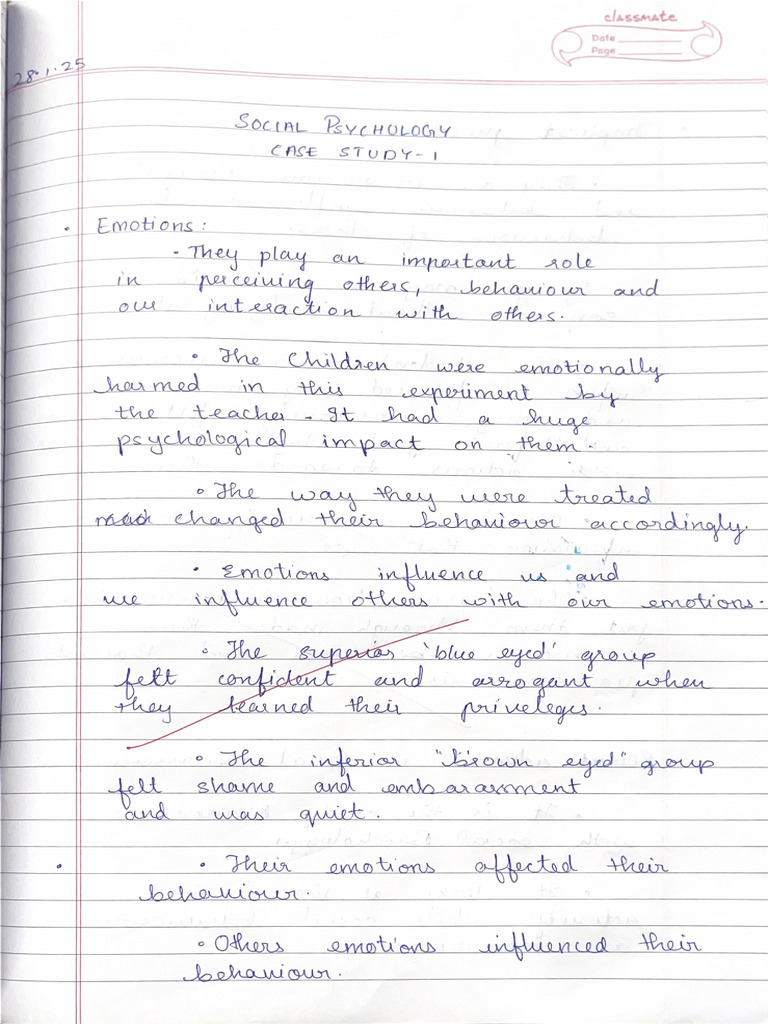 classmate
Date
Page
28.1.25
SOCIAL PSYCHOLOGY
CASE STUDY-1
• Emotions:
• They play an important role
in perceiving others, behaviour and
our interaction with others.
• The Children were emotionally
harmed in this experiment by
the teacher. It had a huge
psychological impact on them.
• The way they were treated
changed their behaviour accordingly.
• Emotions influence us and
we influence others with our emotions.
• The superior 'blue eyed' group
felt confident and arrogant when
they learned their priveleges.
• The inferior "brown eyed" group
felt shame and embarassment
and was quiet.
• Their emotions affected their
behaviour.
• Others emotions influenced their
behaviour.